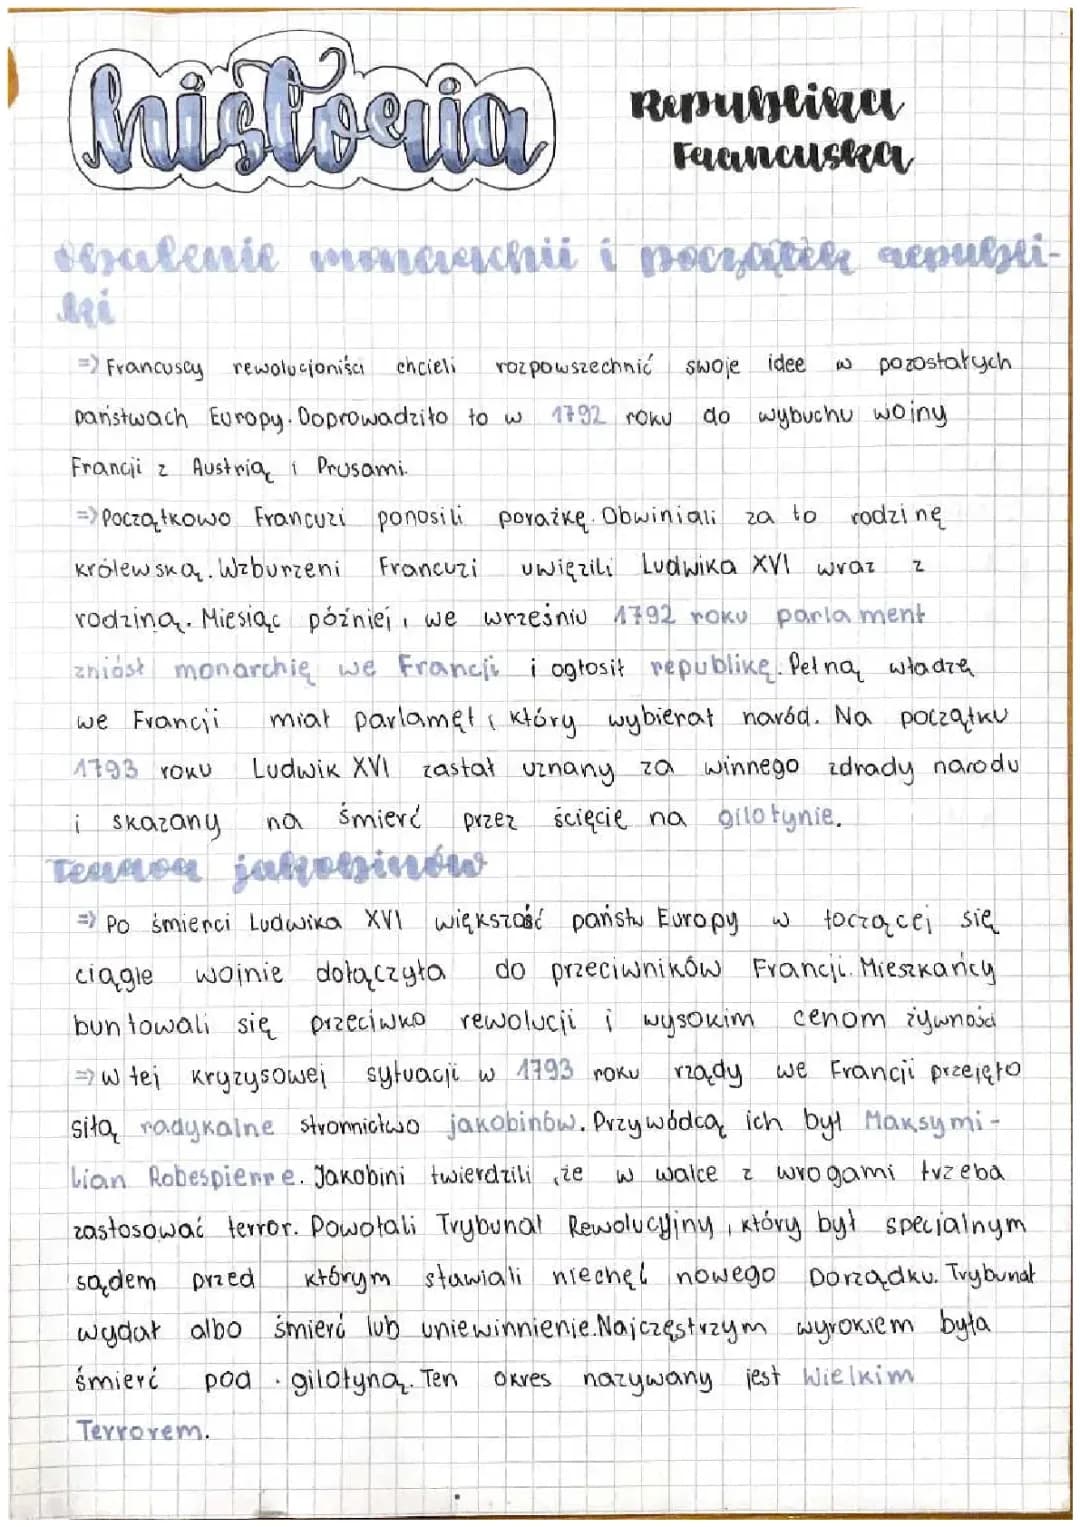 historia
Republika
Francuska
obalenie monarchii i początek republi-
ki
=> Francuscy rewolucjoniści chcieli rozpowszechnić swoje idee w pozostałych
państwach Europy. Doprowadziło to w 1792 roku do wybuchu wojny
Francji z Austrią i Prusami.
=> Początkowo Francuzi ponosili porażkę. Obwiniali za to rodzinę
królewską. Wzburzeni Francuzi uwięzili Ludwika XVI wraz z
rodziną. Miesiąc później, we wrześniu 1792 roku parlament
zniósł monarchię we Francji i ogłosił republikę. Pełną władzę
we Francji miał parlamęt, który wybierał naród. Na początku
1793 roku Ludwik XVI zastał uznany za winnego zdrady narodu
i skazany na śmierć przez ścięcie na gilotynie.
Terror jakobinów
=> Po śmierci Ludwika XVI większość państw Europy w toczącej się
ciągle wojnie dołączyła do przeciwników Francji. Mieszkańcy
buntowali się przeciwko rewolucji i wysokim cenom żywności
=> W tej kryzysowej sytuacji w 1793 roku rządy we Francji przejęło
siłą radykalne stronnictwo jakobinów. Przywódcą ich był Maksymi-
lian Robespierre. Jakobini twierdzili, że w walce z wrogami trzeba
zastosować terror. Powołali Trybunał Rewolucyjny, który był specjalnym
sądem przed którym stawiali niechęć nowego porządku. Trybunał
wydał albo śmierć lub uniewinnienie. Najczęstrzym wyrokiem była
śmierć pod gilotyną. Ten okres nazywany jest Wielkim
Terrorem.